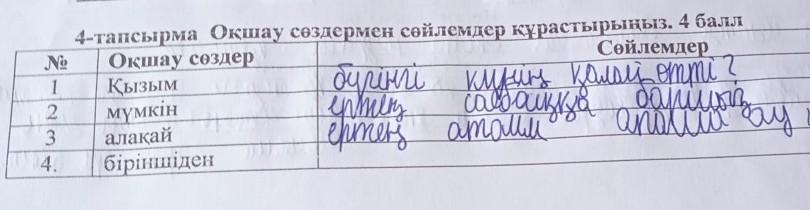 4-тапсырма Оқшау сөздермен сөйлемдер құрастырыңыз. 4 балл
№ Оқшау сөздер Сөйлемдер
1 Қызым бүгінгі күнің қалай өтті?
2 мүмкін ертең сабаққа
3 алақай ертең атам
4. біріншіден